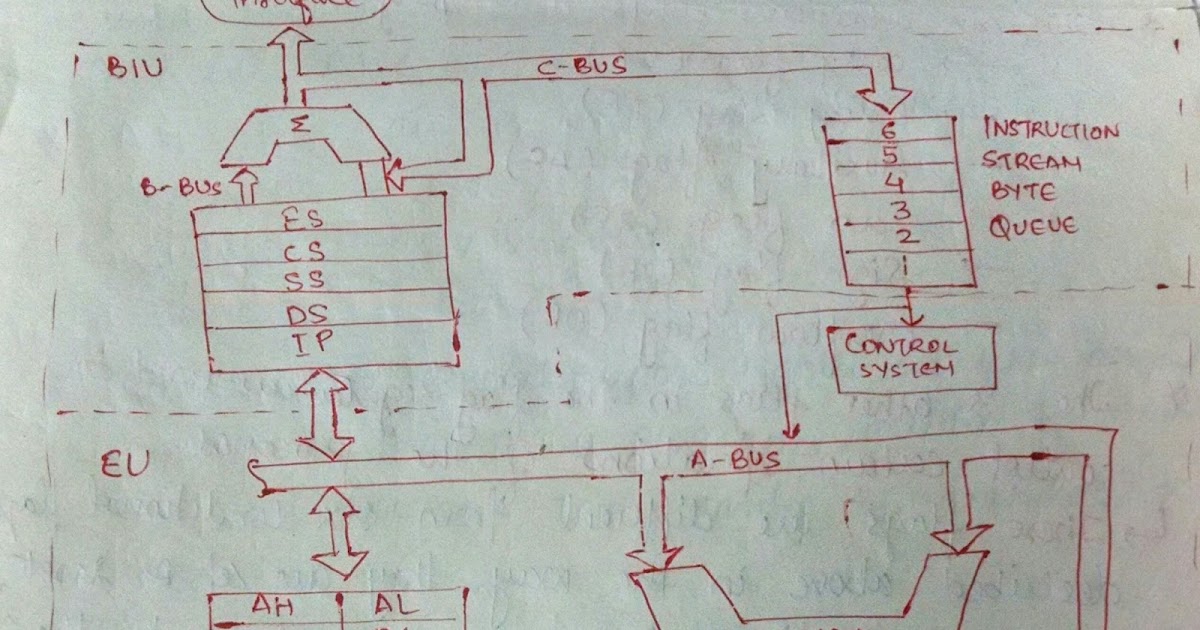 Interface
BIU
C-BUS
Σ
B-BUS
ES
CS
SS
DS
IP
6
5
4
3
2
1
INSTRUCTION
STREAM
BYTE
QUEUE
CONTROL
SYSTEM
EU
A-BUS
AH AL